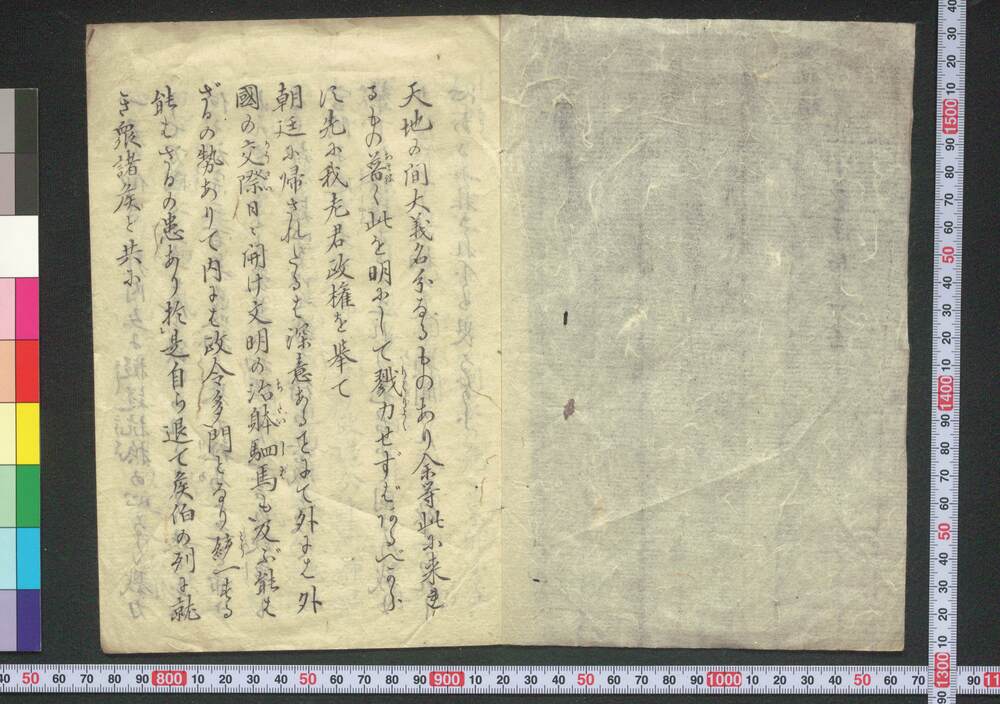 天地の間大義名分なるものあり余等此に来
るもの普く此を明にして戮力せずばあるべから
ず先に我老君政権を挙て
朝廷に帰されたるは深意ある事にて外には外
國の交際日々開け文明の治躰駟馬も及ぶ能は
ざるの勢ありて内には政令多門となり統一する
能はざるの患あり於是自ら退て侯伯の列に就
き衆諸侯と共に